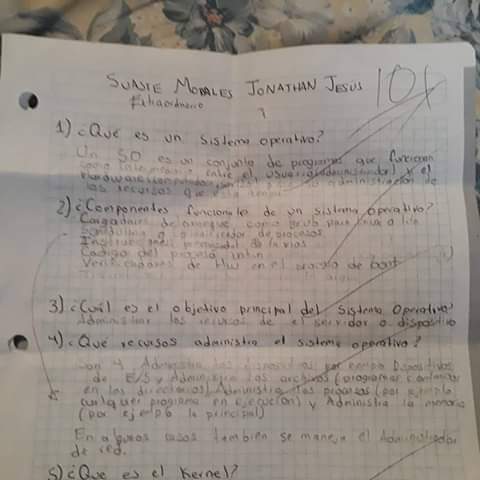 SUASTE MORALES JONATHAN JESUS 10
Extraordinario
1) ¿Qué es un sistema operativo?
Un SO es un conjunto de programas que funcionan
como intermediario entre el usuario (administrador) y el
Hardware (computadora) para la administración de
los recursos que esta tenga
2) ¿Componentes funcionales de un sistema operativo?
Cargadores de arranque como Grub para linux o lilo
Scheduling o planificador de procesos
Codigo del proceso init
Verificadores de HW en el proceso de boot
3) ¿Cuál es el objetivo principal del Sistema Operativo?
Administrar los recursos de el servidor o dispositivo
4) ¿Qué recursos administra el sistema operativo?
Son 4 Administra los dispositivos por ejemplo Dispositivos
de E/S y Administra los archivos (programas contenidos
en los directorios) Administra los procesos (por ejemplo
cualquier programa en ejecución) y Administra la memoria
(por ejemplo la principal)
En algunos casos también se maneja el Administrador
de red.
5) ¿Que es el Kernel?